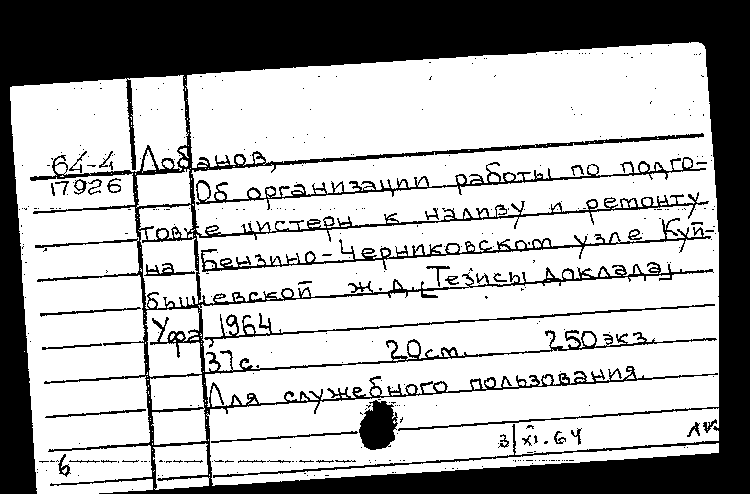 64-4 Лобанов,
17926 Об организации работы по подго-
товке цистерн к наливу и ремонту
на Бензино-Черниковском узле Куй-
бышевской ж.д. [Тезисы доклада].
Уфа, 1964.
37с. 20см. 250экз.
Для служебного пользования.
3|XI.64
6